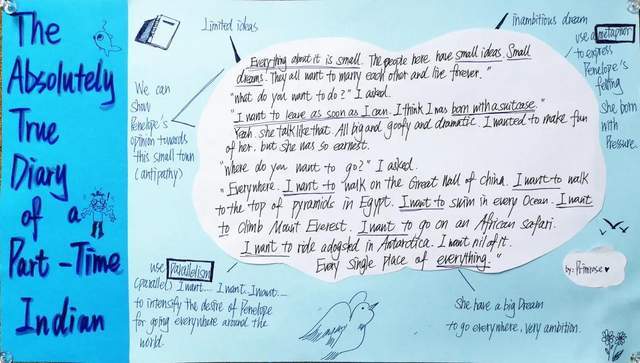 The
Absolutely
True
Diary
of a
Part-Time
Indian
Limited ideas
inambitious dream
We can
show
Penelope's
opinion towards
this small town
(antipathy)
Everything about it is small. The people here have small ideas. Small
dreams. They all want to marry each other and live forever."
"what do you want to do?" I asked.
"I want to leave as soon as I can. I think I was born with a suitcase."
Yeah. she talk like that. All big and goofy and dramatic. I wanted to make fun
of her. but she was so earnest.
"where do you want to go?" I asked.
"Everywhere. I want to walk on the Great Wall of china. I want to walk
to the top of pyramids in Egypt. I want to swim in every Ocean. I want
to climb Mount Everest. I want to go on an African safari.
I want to ride a dogsled in Antarctica. I want all of it.
Every single place of everything."
use a metaphor
to express
Penelope's
felling
she born
with
Pressure.
use parallelism
(parallel) I want... I want. I want...
to intensify the desire of Penelope
for going everywhere around the
world.
She have a big Dream
to go everywhere, very ambition.
by: Primrose